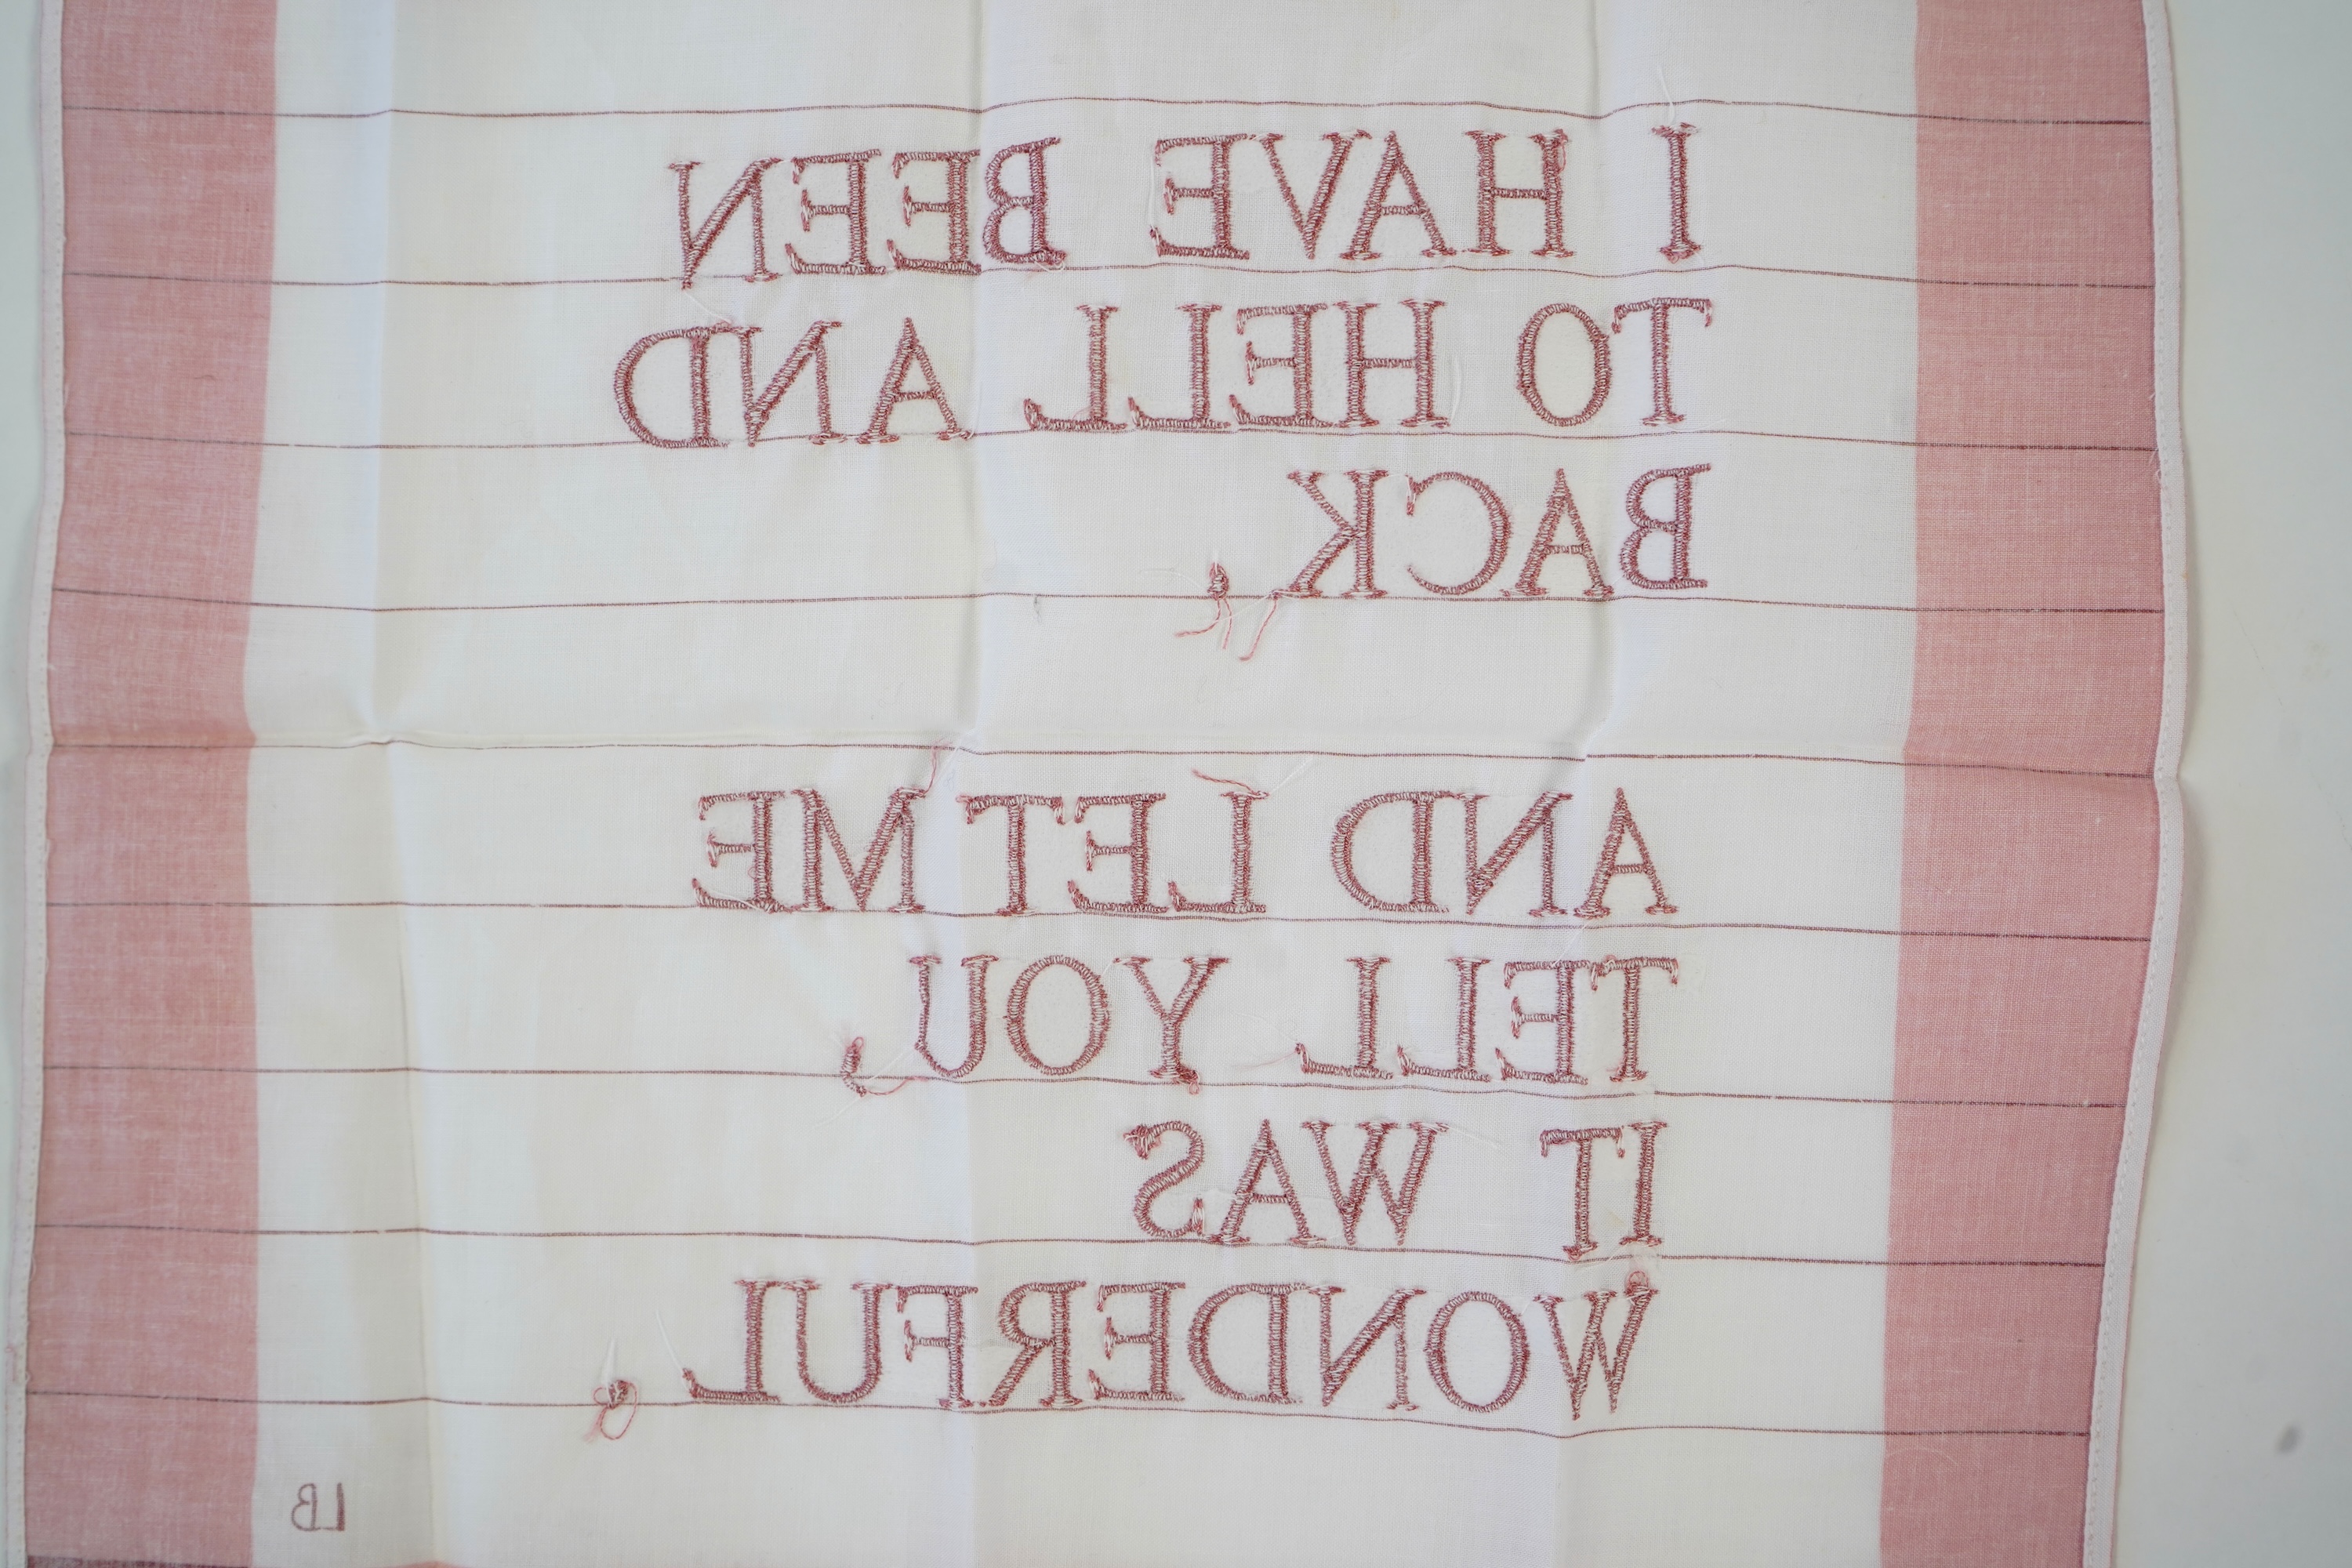 I HAVE BEEN
TO HELL AND
BACK.
AND LET ME
TELL YOU,
IT WAS
WONDERFUL.
LB